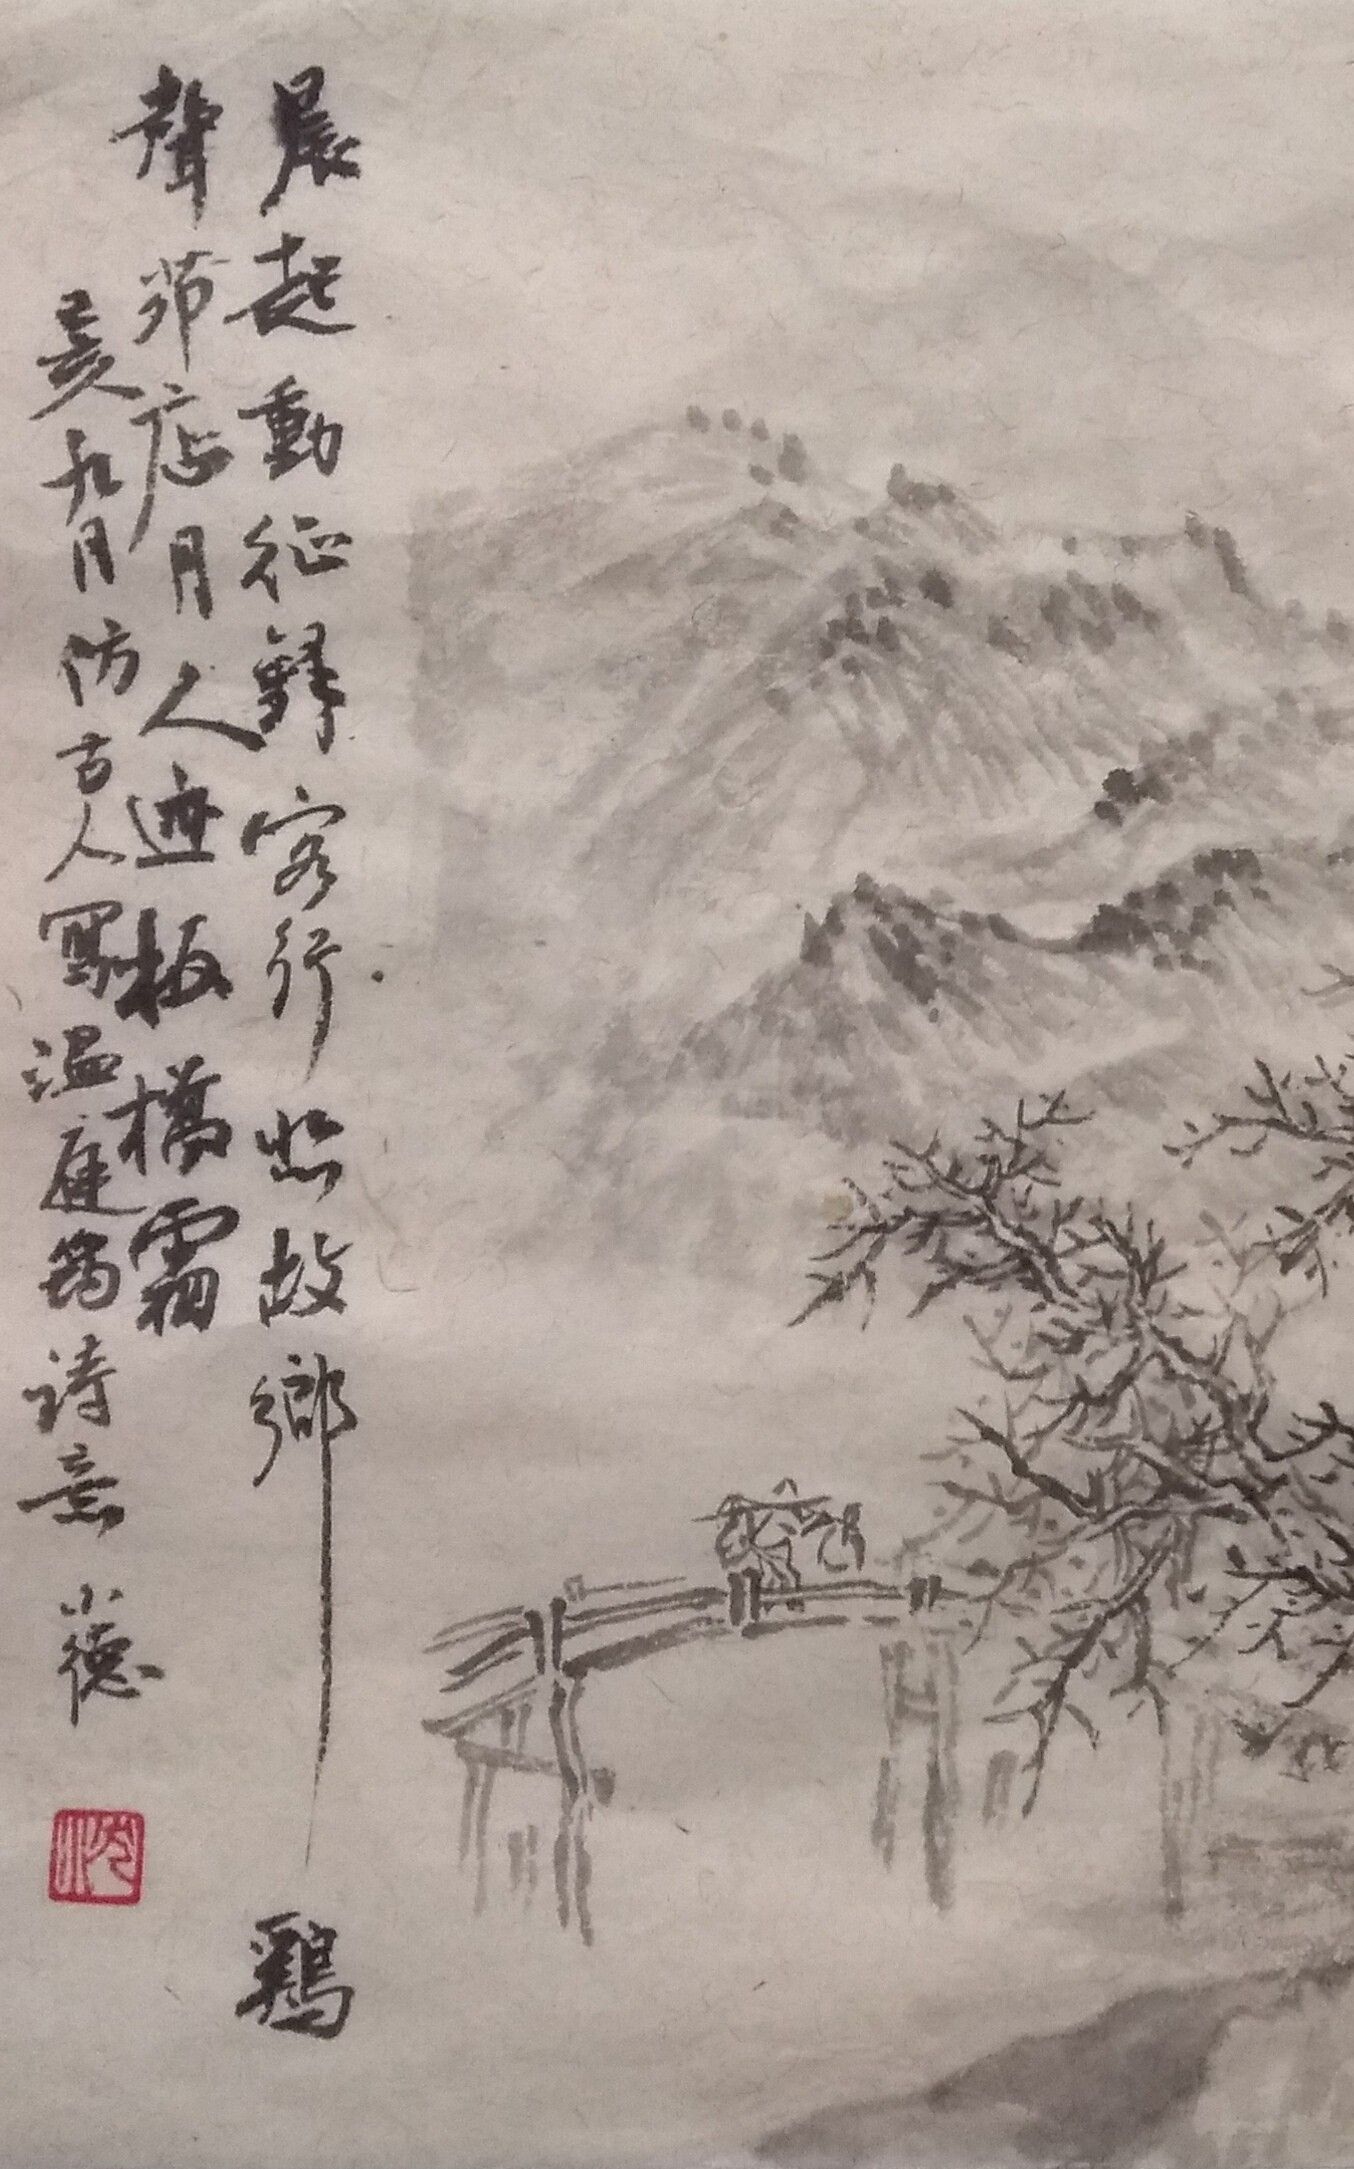 晨起動征鐸客行悲故鄉 鷄
聲茆店月人迹板橋霜
己亥九月仿古人寫温庭筠詩意 小德